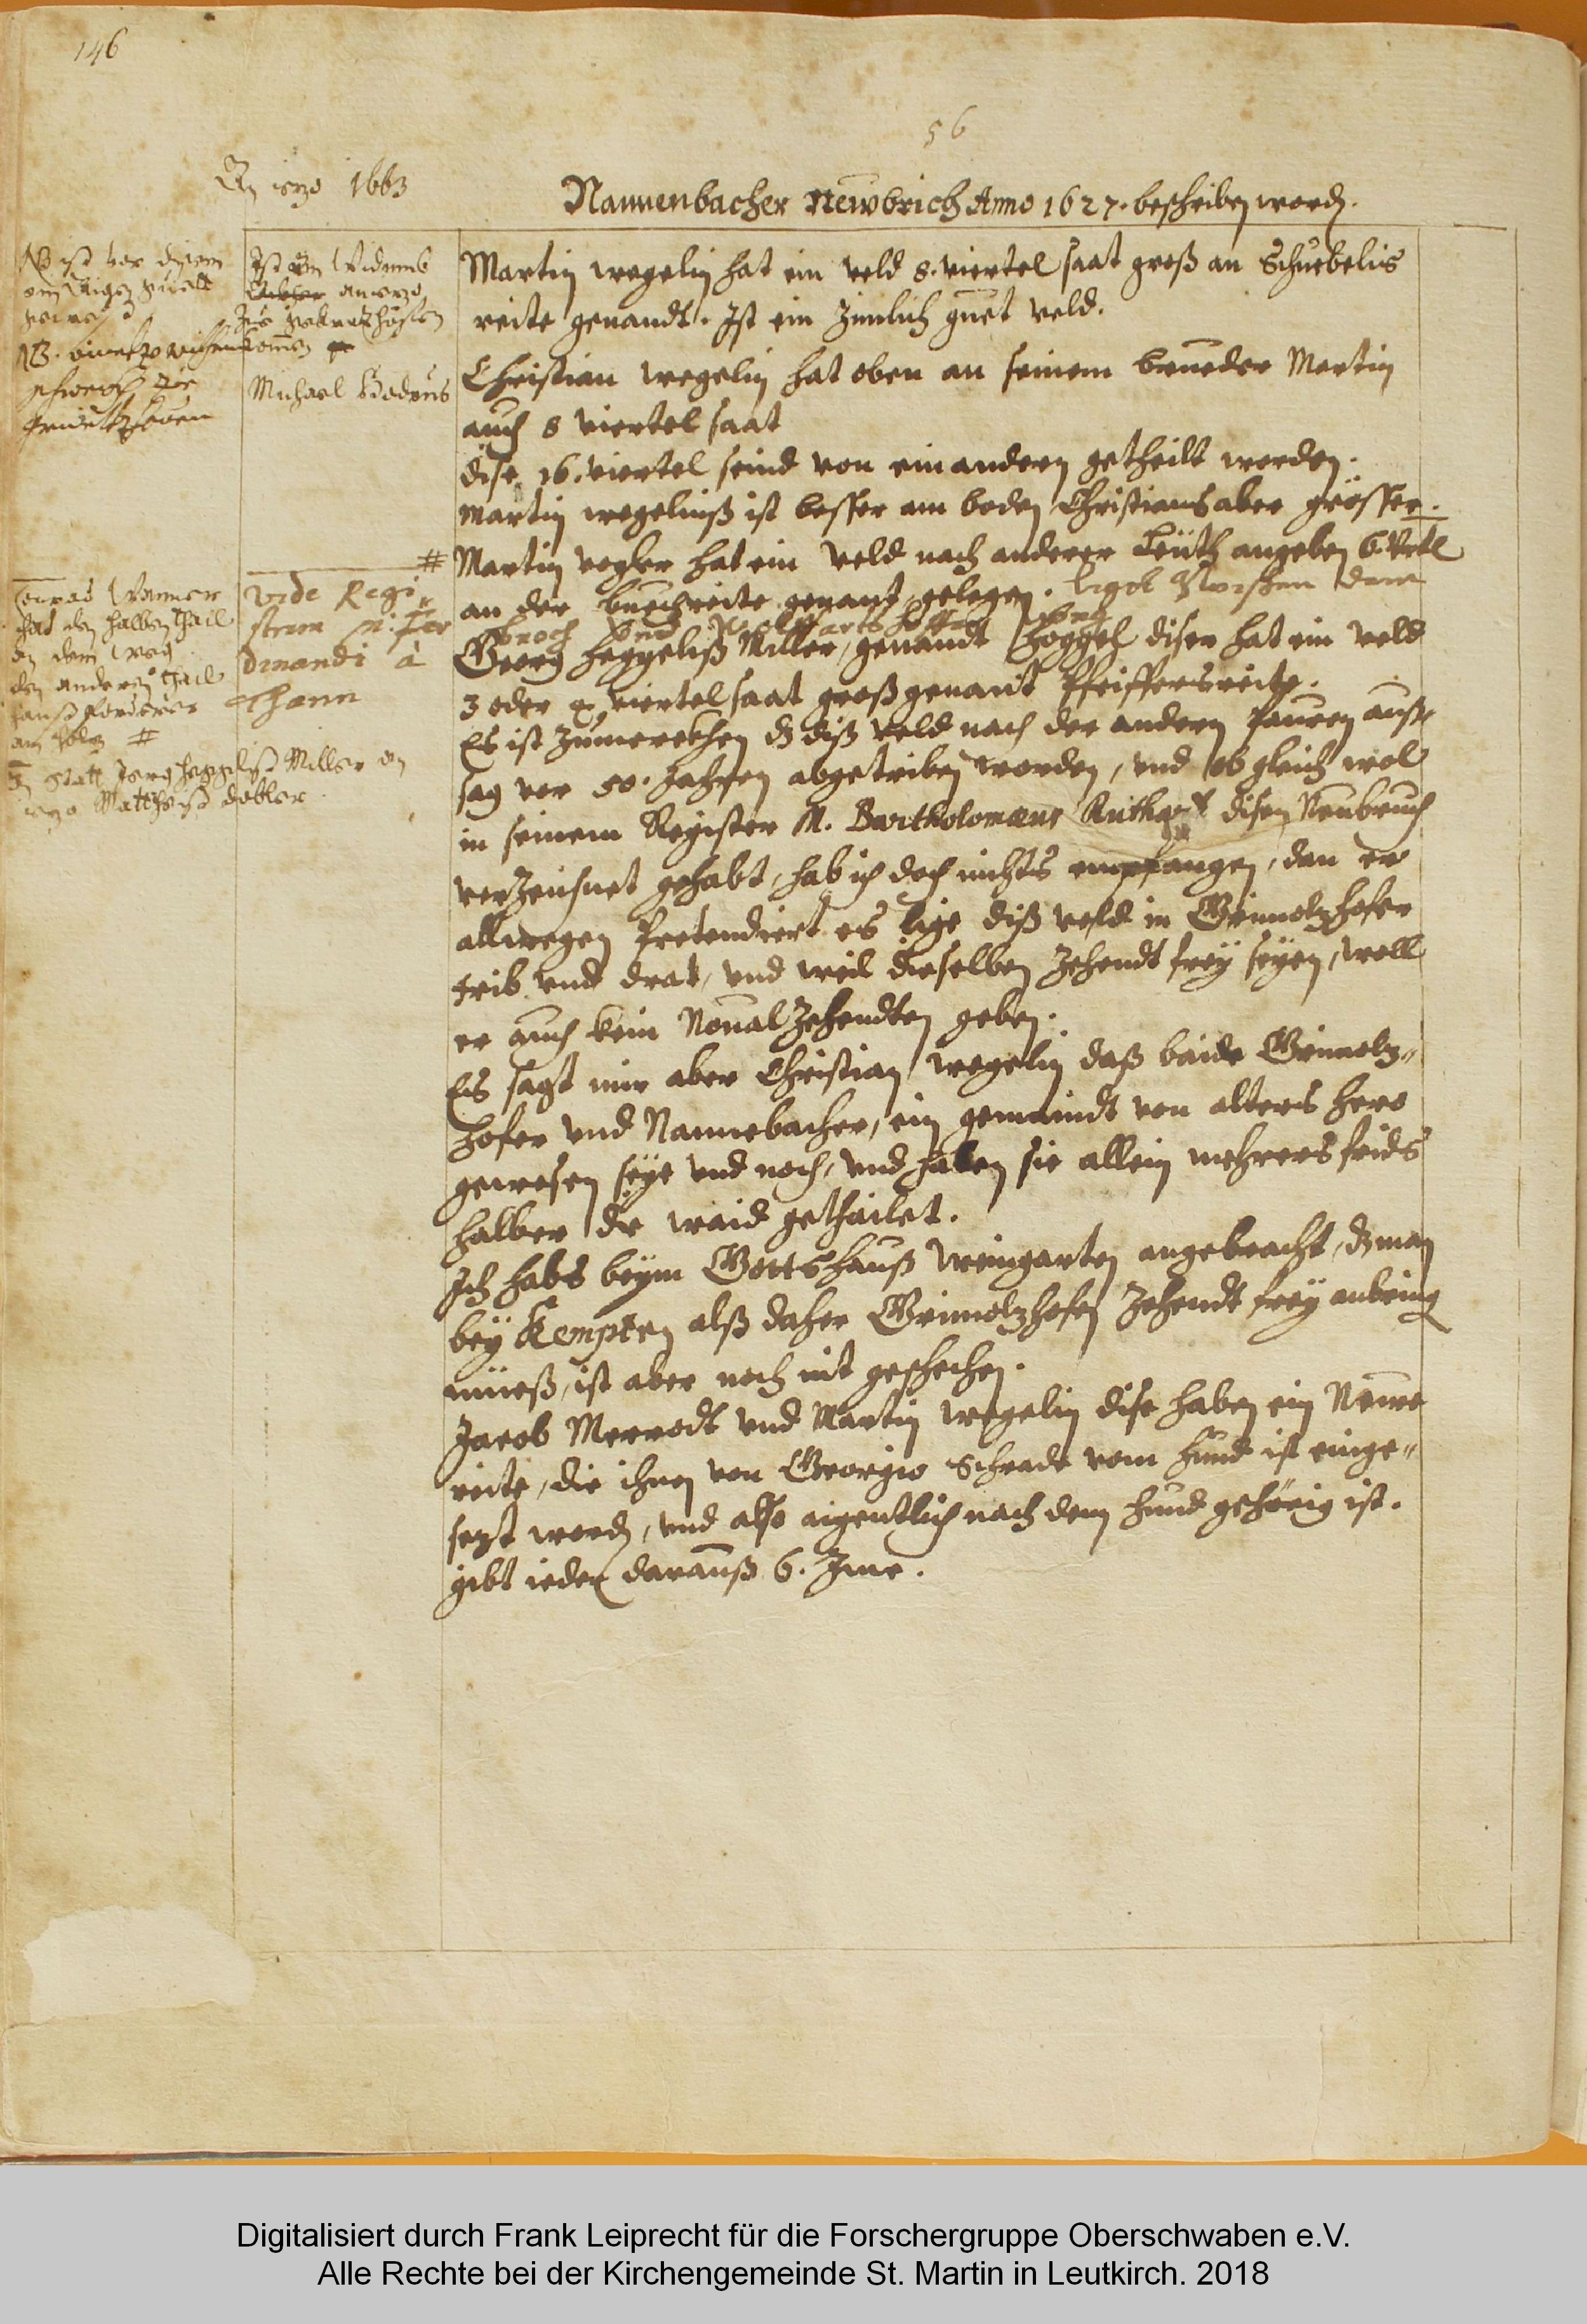 146
56
An iezo 1663
Nannenbacher Newbrich Anno 1627. beschriben word.
Martin wegelin hat ein veld 8. viertel saat groß an Schuebelis
reite genandt. Ist ein zimlich guet veld.
Christian wegelin hat oben an seinem brueder Martin
auch 8 viertel saat
dise 16. viertel seind von einandern getheilt worden.
Martin wegelinß ist besser am boden Christians aber grösser.
# Martin vogler hat ein veld nach anderer Leüth angeben 6. vrtl
an der buechreite genant gelegen.
Georg heggeliß Miller, genandt hoggel diser hat ein veld
3 oder 4 viertel saat groß genant Pfeiffersreite.
Es ist zumerckhen dz diß veld nach der andern bauren auß
sag vor 50. Jahren abgetriben worden, vnd ob gleich wol
in seinem Register M. Bartholomæus disen Neubruch
verzeichnet gehabt, hab ich doch nichts empfangen, dan er
allwegen pretendiert es lige diß veld in Grimolzhofer
trib vnd drat, vnd weil dieselben zehendt frey seyen, well
er auch kein Noual zehendten geben.
Es sagt mir aber Christian wegelin daß baide Grimolz-
hofer vnd Nannebacher, ein gemaindt von alters hero
gewesen seye vnd noch, vnd haben sie allein mehrers frids
halber die waid gethailet.
Ich habs beym Gottshauß Weingarten angebracht, dz man
bey Kempten alß daher Grimolzhofen zehendt frey anbring
müeß, ist aber noch nit geschechen.
Jacob Merrodt vnd Martin wegelin dise haben ein Newe
reite, die ihnen von Georgio Schrade vom hund ist einge-
sezt word, vnd also aigentlich nach dem hund gehörig ist.
gibt ieder darauß 6. Ime.
Ist Widumb
Michael
vide Regi-
strum M. Fer
dinandi à
Thann
hat den halben thail
an dem weg
den anderen thail
hanß
#
statt Jerg heggeliß Miller an
iezo Mattheiß dobler.
Digitalisiert durch Frank Leiprecht für die Forschergruppe Oberschwaben e.V.
Alle Rechte bei der Kirchengemeinde St. Martin in Leutkirch. 2018